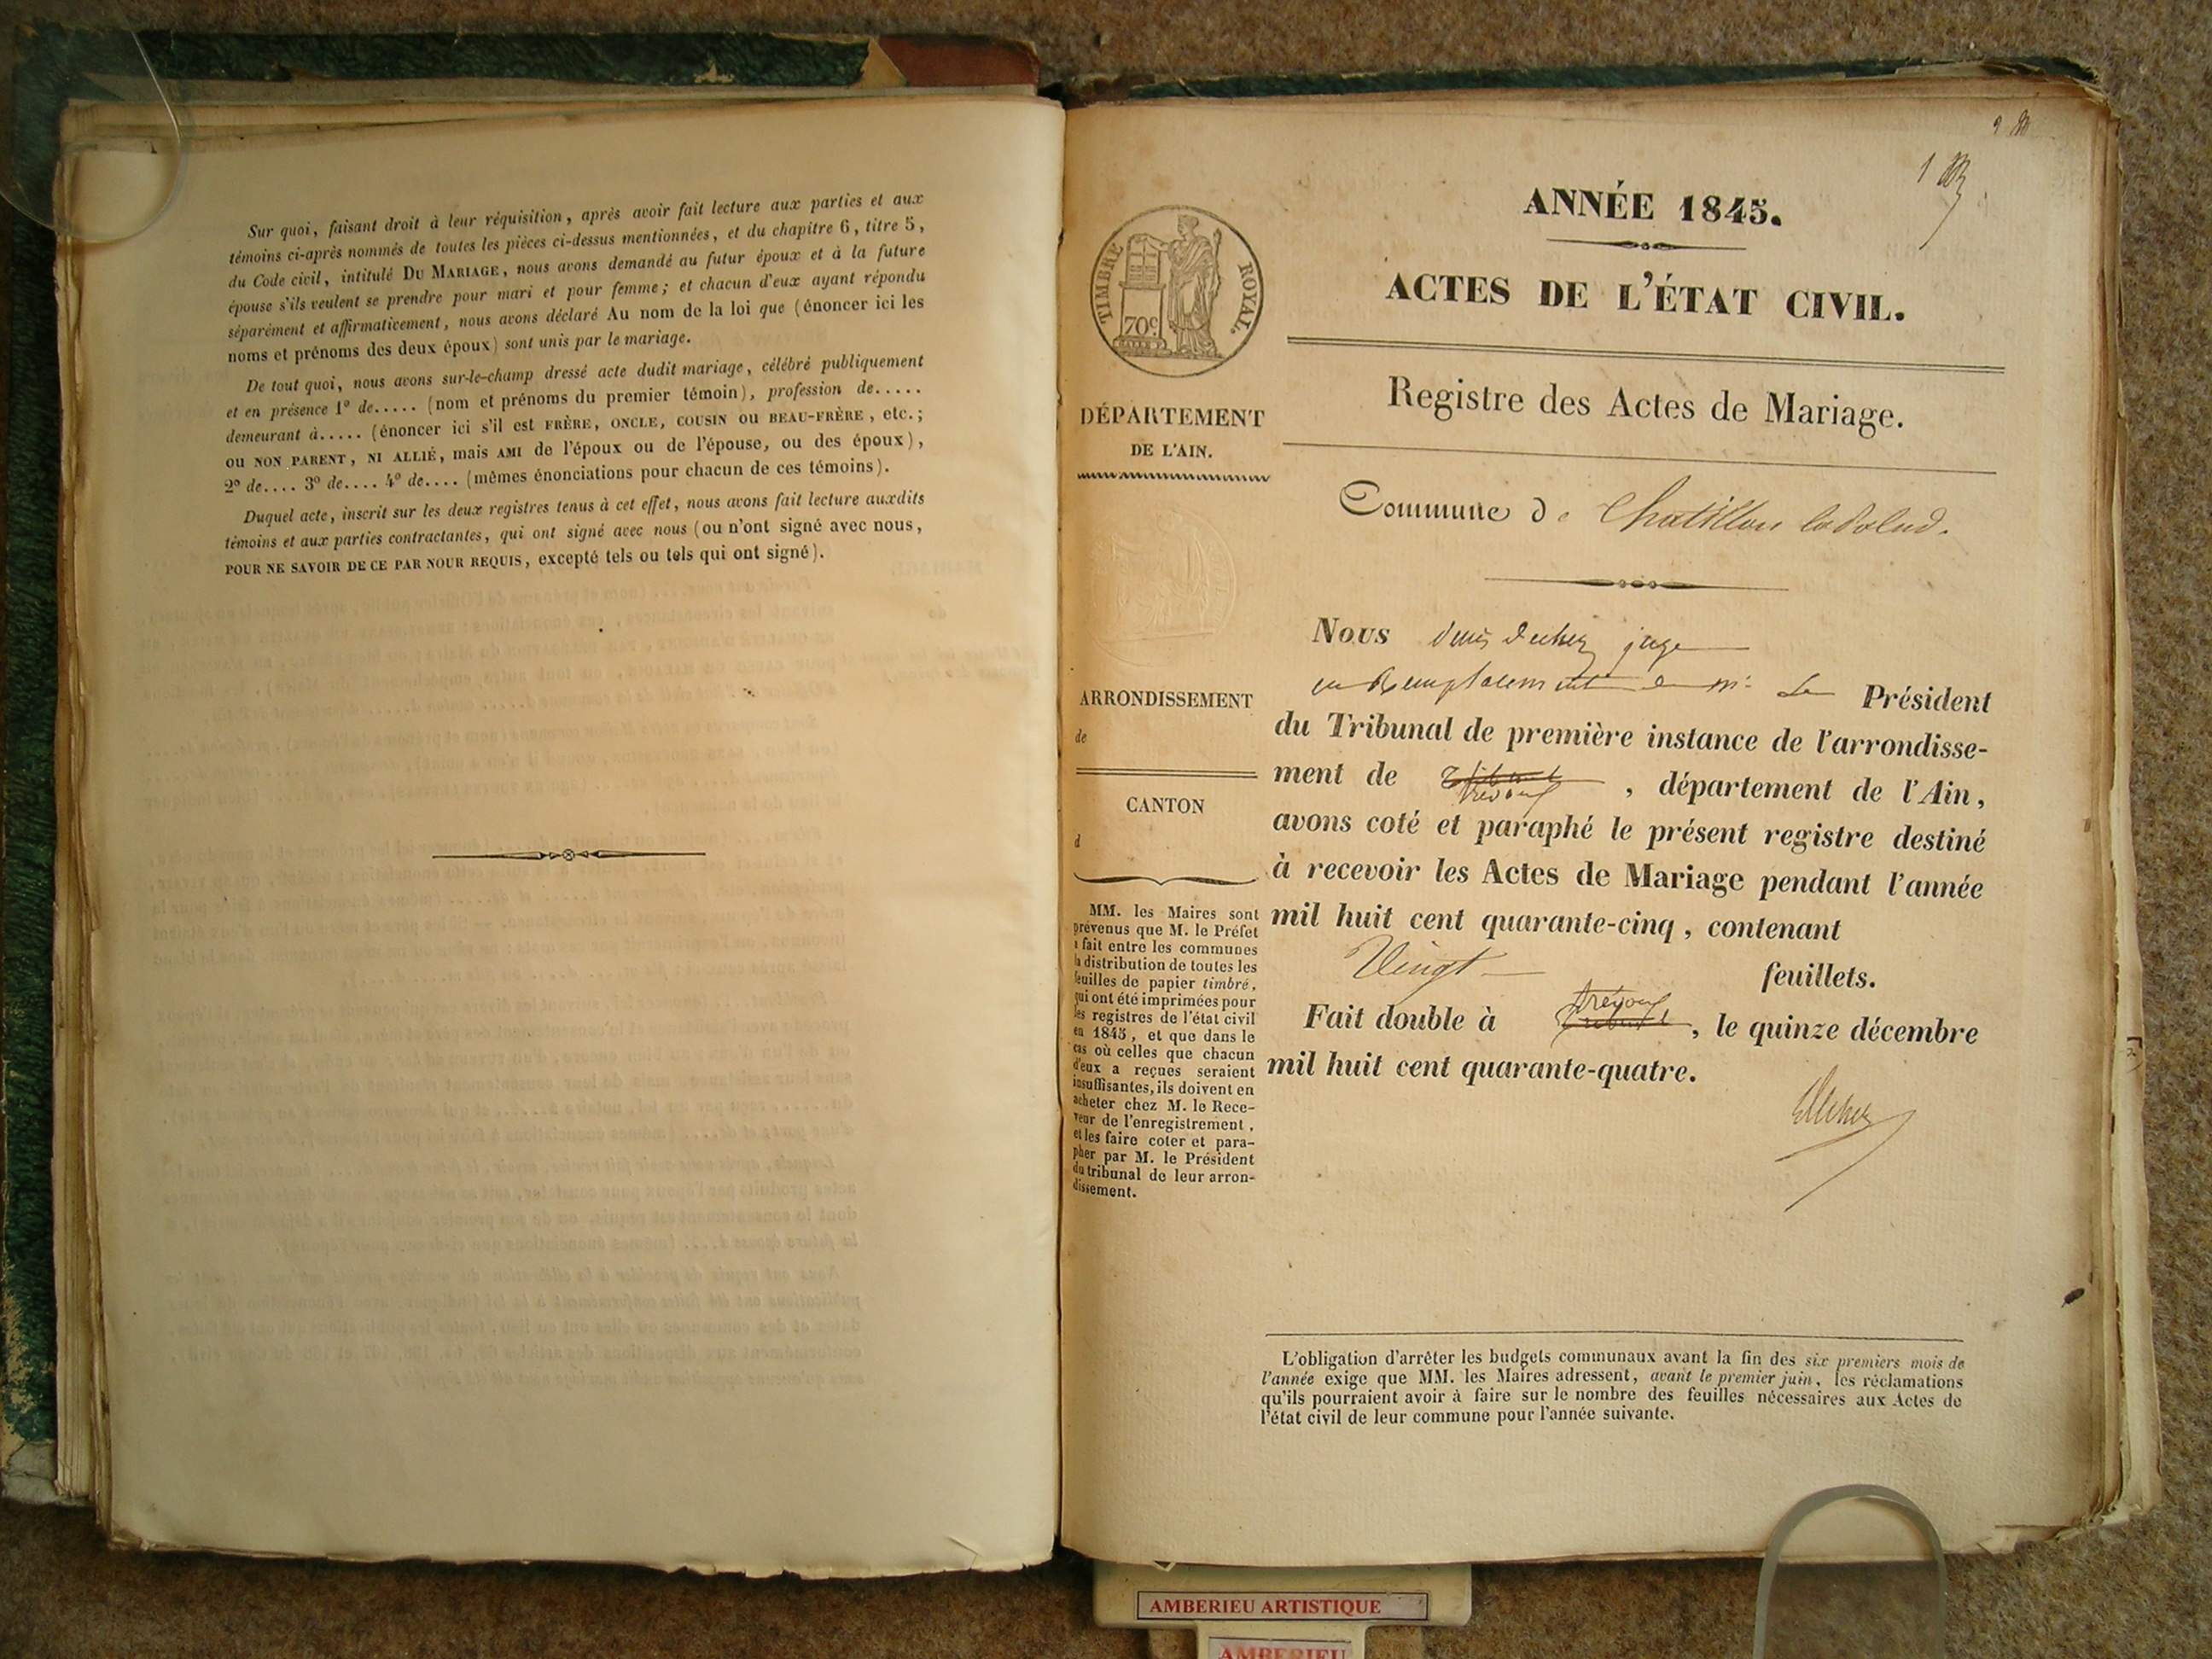 Sur quoi, faisant droit à leur réquisition, après avoir fait lecture aux parties et aux
témoins ci-après nommés de toutes les pièces ci-dessus mentionnées, et du chapitre 6, titre 5,
du Code civil, intitulé DU MARIAGE, nous avons demandé au futur époux et à la future
épouse s'ils veulent se prendre pour mari et pour femme; et chacun d'eux ayant répondu
séparément et affirmativement, nous avons déclaré Au nom de la loi que (énoncer ici les
noms et prénoms des deux époux) sont unis par le mariage.
De tout quoi, nous avons sur-le-champ dressé acte dudit mariage, célébré publiquement
et en présence 1º de..... (nom et prénoms du premier témoin), profession de.....
demeurant à..... (énoncer ici s'il est FRÈRE, ONCLE, COUSIN ou BEAU-FRÈRE, etc.;
ou NON PARENT, NI ALLIÉ, mais AMI de l'époux ou de l'épouse, ou des époux),
2º de.... 3º de.... 4º de.... (mêmes énonciations pour chacun de ces témoins).
Duquel acte, inscrit sur les deux registres tenus à cet effet, nous avons fait lecture auxdits
témoins et aux parties contractantes, qui ont signé avec nous (ou n'ont signé avec nous,
POUR NE SAVOIR DE CE PAR NOUR REQUIS, excepté tels ou tels qui ont signé).
1
ANNÉE 1845.
ACTES DE L'ÉTAT CIVIL.
Registre des Actes de Mariage.
TIMBRE ROYAL.
70c
DÉPARTEMENT
DE L'AIN.
Commune de Chatillon la Palud.
ARRONDISSEMENT
de
CANTON
d
MM. les Maires sont
prévenus que M. le Préfet
a fait entre les communes
la distribution de toutes les
feuilles de papier timbré,
qui ont été imprimées pour
les registres de l'état civil
en 1845, et que dans le
cas où celles que chacun
d'eux a reçues seraient
insuffisantes, ils doivent en
acheter chez M. le Rece-
veur de l'enregistrement,
et les faire coter et para-
pher par M. le Président
du tribunal de leur arron-
dissement.
Nous juge
en Remplacement de mr Le Président
du Tribunal de première instance de l'arrondisse-
ment de trévoux, département de l'Ain,
avons coté et paraphé le présent registre destiné
à recevoir les Actes de Mariage pendant l'année
mil huit cent quarante-cinq, contenant
Vingt feuillets.
Fait double à trévoux, le quinze décembre
mil huit cent quarante-quatre.
L'obligation d'arrêter les budgets communaux avant la fin des six premiers mois de
l'année exige que MM. les Maires adressent, avant le premier juin, les réclamations
qu'ils pourraient avoir à faire sur le nombre des feuilles nécessaires aux Actes de
l'état civil de leur commune pour l'année suivante.
AMBERIEU ARTISTIQUE
AMBERIEU